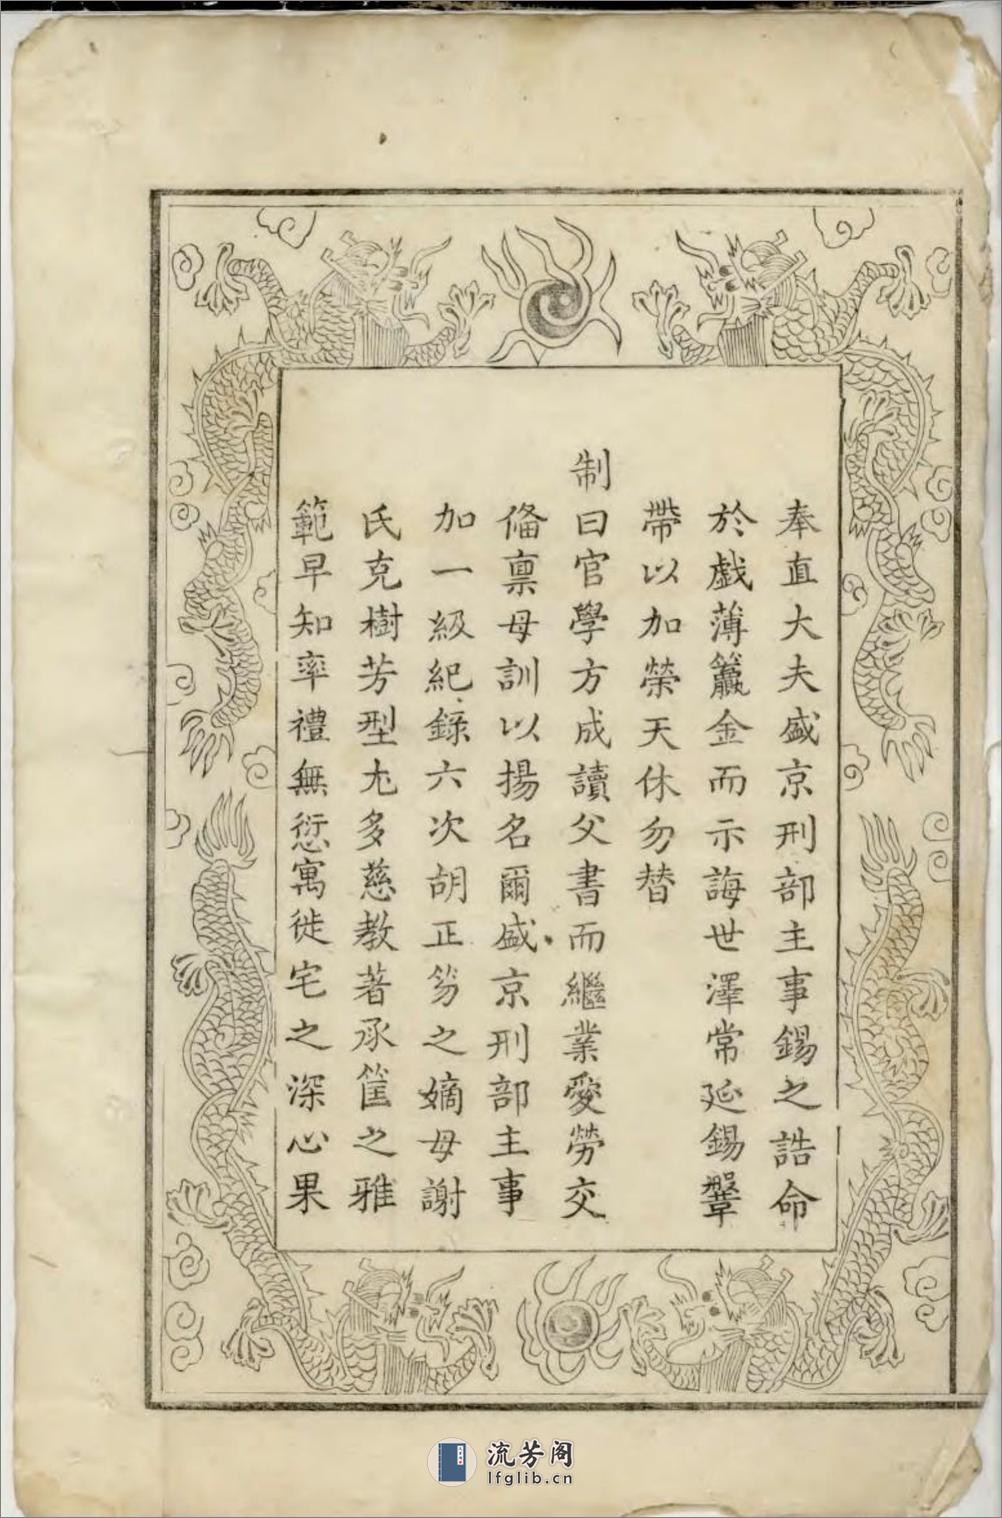 奉直大夫盛京刑部主事錫之誥命
於戲薄籯金而示誨世澤常延錫鞶
帶以加榮天休勿替
制曰官學方成讀父書而繼業愛勞交
俻禀母訓以揚名爾盛京刑部主事
加一級紀錄六次胡正笏之嫡母謝
氏克樹芳型尤多慈教著承筐之雅
範早知率禮無愆寓徙宅之深心果
流芳阁
lfglib.cn